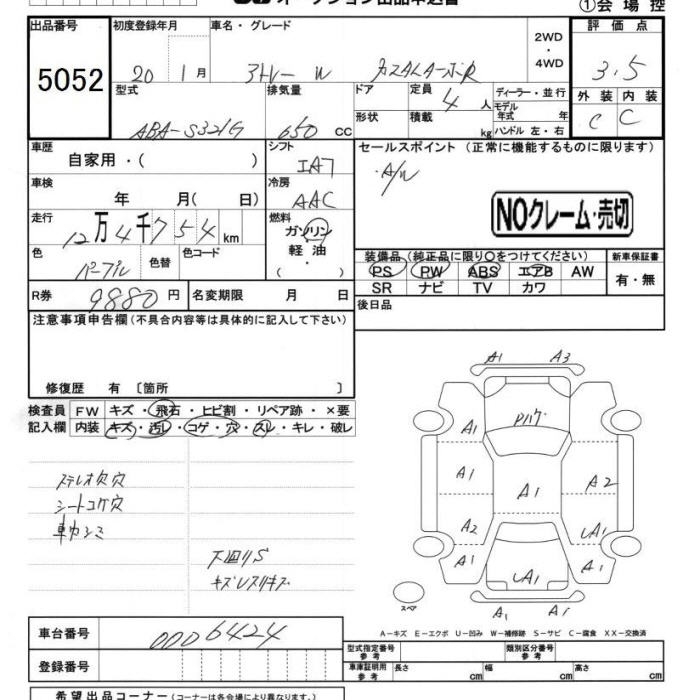 オークション出品申込書
①会場控
出品番号
5052
初度登録年月
20 1月
車名・グレード
アトレーW カスタムターボR
2WD・4WD
評価点
3.5
型式
ABA-S321G
排気量
650 CC
ドア
形状
定員 4人
積載 kg
ディーラー・並行
モデル年式 年
ハンドル 左・右
外装 内装
C C
車歴
自家用・( )
シフト
IAT
セールスポイント (正常に機能するものに限ります)
A/W
車検
年 月( 日)
冷房
AAC
NOクレーム・売切
走行
12万4千754km
燃料
ガソリン
軽油
・( )
色
パープル
色替
色コード
装備品(純正品に限り○をつけてください)
PS PW ABS エアB AW
SR ナビ TV カワ
新車保証書
有・無
R券 9880円
名変期限 月 日
後日品
注意事項申告欄(不具合内容等は具体的に記入して下さい)
修復歴 有〔箇所 〕
検査員記入欄
FW キズ・飛石・ヒビ割・リペア跡・×要
内装 キズ・汚レ・コゲ・穴・スレ・キレ・破レ
ステレオ欠穴
シートコゲ穴
車内シミ
下回りS
キズレスリキズ
A1 A3
A1
A1 A1 A2
A2 UA1
A1 UA1 A1
A1 A1
スペア
A-キズ E-エクボ U-凹み W-補修跡 S-サビ C-腐食 XX-交換済
車台番号
0006424
登録番号
型式指定番号 参考
類別区分番号 参考
車庫証明用 参考
長さ cm
幅 cm
高さ cm
希望出品コーナー(コーナーは各会場により異なります。)